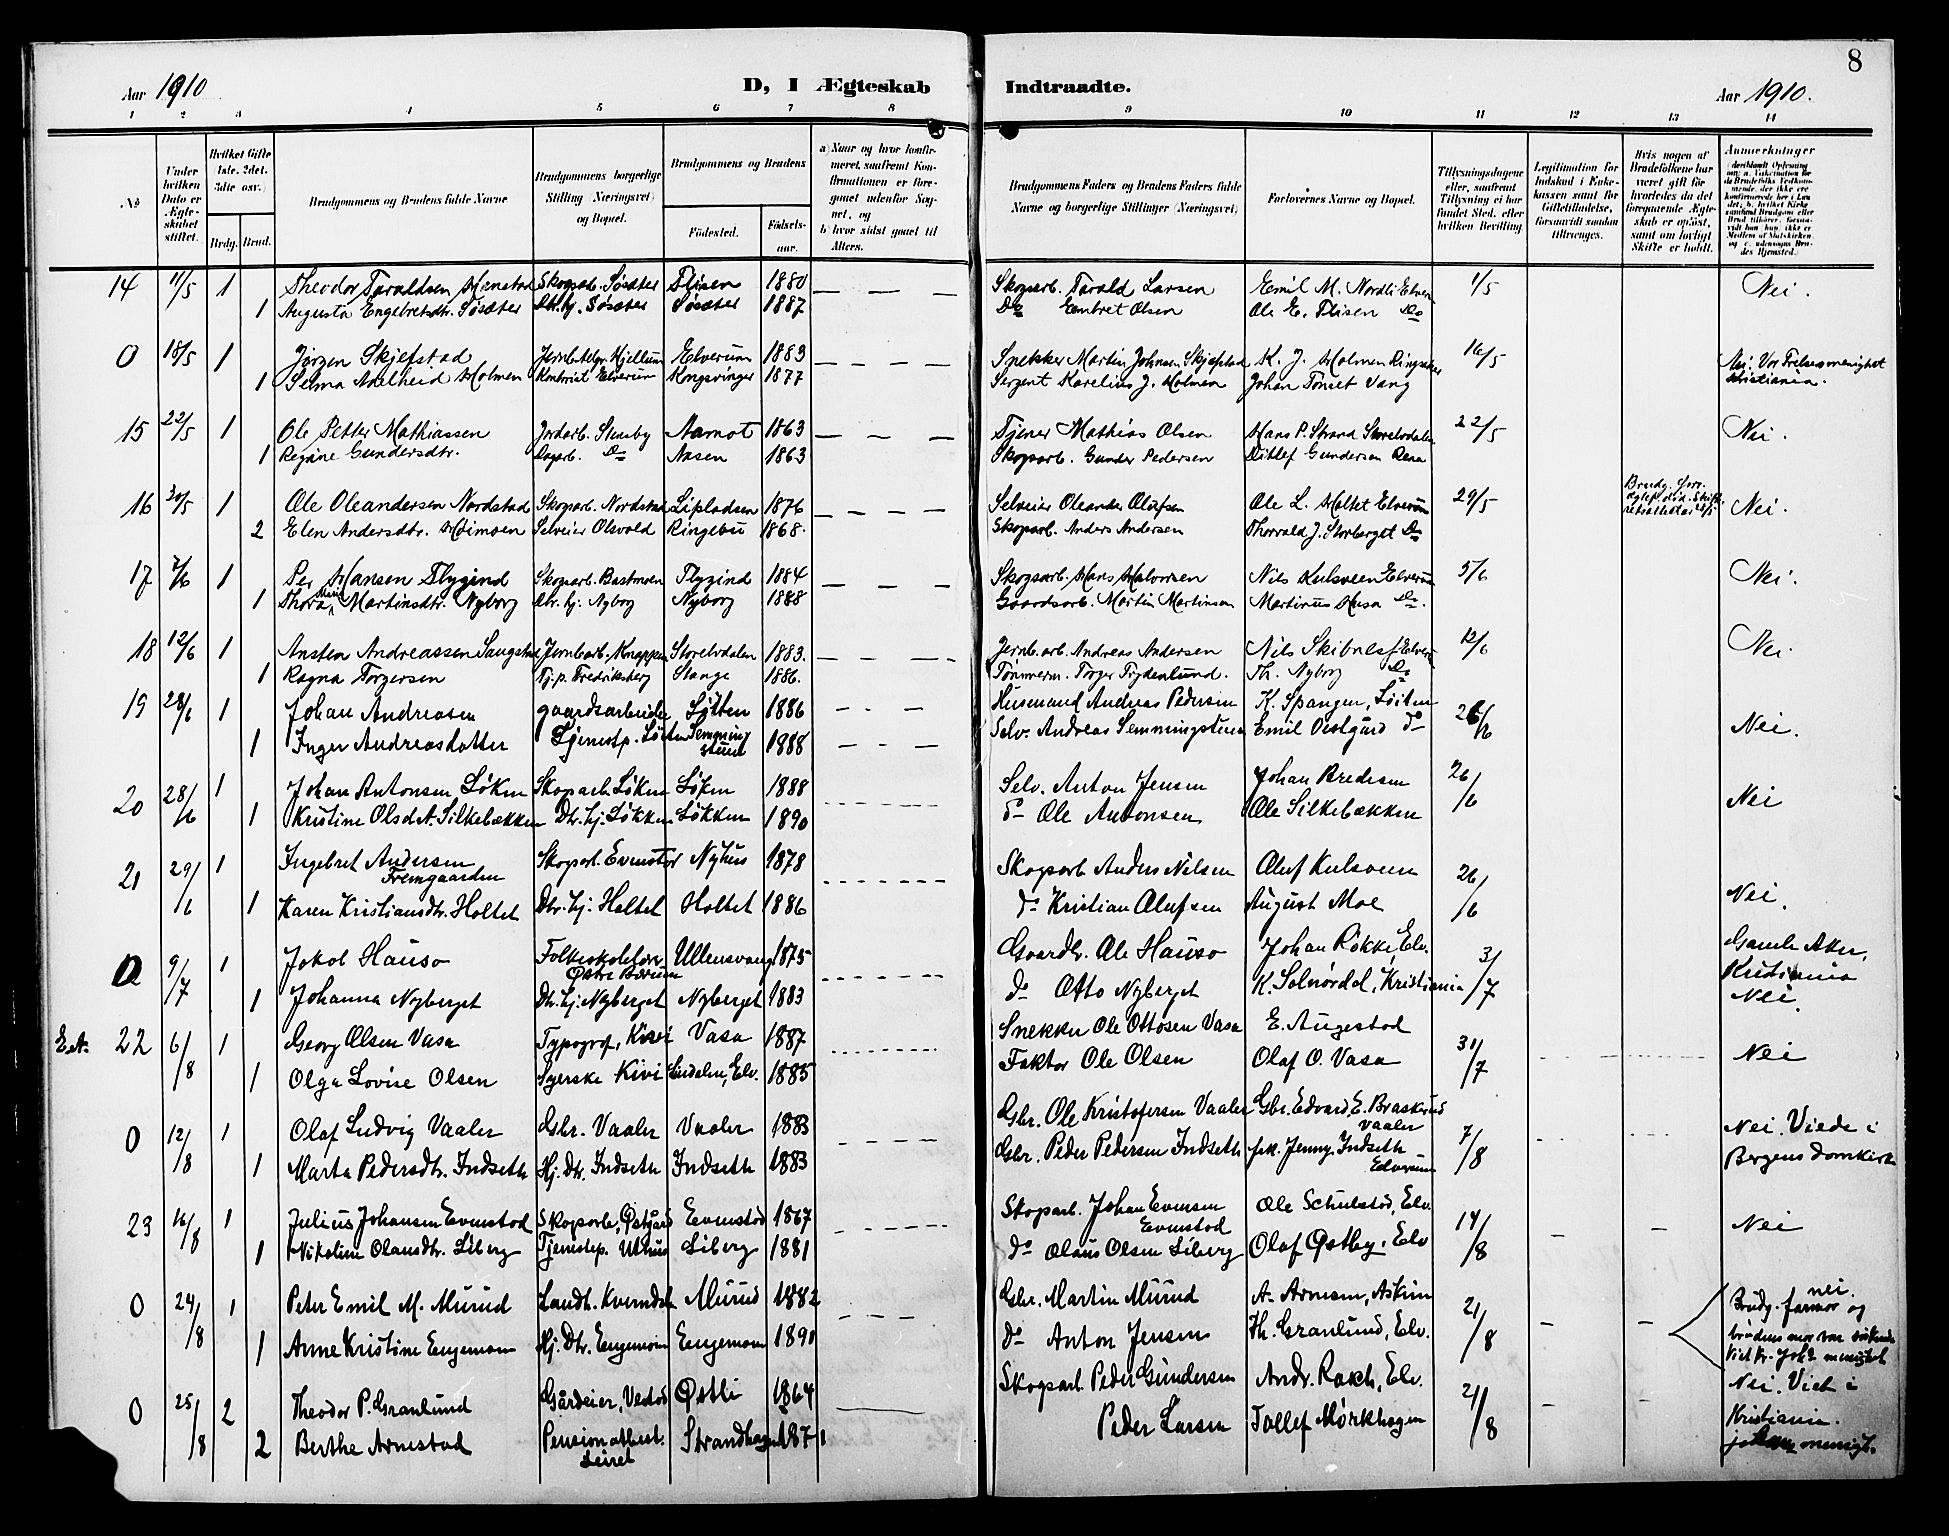 8
Aar 1910
D, I Ægteskab Indtraadte.
Aar 1910.
1 2 3 4 5 6 7 8 9 10 11 12 13 14
No
Under hvilken Dato er Ægteskabet stiftet.
Hvilket Gifte 1ste, 2det, 3die osv.
Brdg. Brud.
Brudgommens og Brudens fulde Navne
Brudgommens borgerlige Stilling (Næringsvei) og Bopæl.
Brudgommens og Brudens
Fødested.
Fødselsaar.
a) Naar og hvor konfirmeret, saafremt Konfirmationen er foregaaet udenfor Sognet, og
b) hvor sidst gaaet til Alters.
Brudgommens Faders og Brudens Faders fulde Navne og borgerlige Stillinger (Næringsvei)
Forlovernes Navne og Bopæl.
Tillysningsdagene eller, saafremt Tillysning ei har fundet Sted, eller hvilken Bevilling.
Legitimation for Indskud i Enkekassen samt for Giftetilladelse, forsaavidt saadan tiltrænges.
Hvis nogen af Brudefolkene har været gift før hvorledes da det foregaaende Ægteskab er opløst, samt om lovligt Skifte er holdt.
Anmerkninger
14 11/5 1 Theodor Taraldsen Hanstad Skogsarb. Søsæter Flisen 1880 Skogsarb. Tarald Larsen Emil M. Nordli Elverum 1/5 Nei.
1 Augusta Engebretsdtr. Søsæter Dtr. hj. Søsæter Søsæter 1887 Do Embret Olsen Ole E. Flisen Do
0 18/5 1 Jörgen Skjefstad Jernb.telgr. Hjellum Elverum 1883 Snekker Martin Johnsen Skjefstad K. J. Holmen Ringsaker 16/5 Nei. Vor Frelsers menighet
1 Selma Adelheid Holmen Kontorist Elverum Kongsvinger 1877 Sergent Karelius J. Holmen Johan Tomet Vang Kristiania.
15 22/5 1 Ole Petter Mathiassen Jordarb. Stensby Aamot 1863 Tjener Mathias Olsen Hans P. Strand Storelvdalen 22/5 Nei.
1 Regine Gundersdtr. Dagarb. Do Aasen 1863 Skogsarb. Gunder Pedersen Ditlef Gundersen Rena
16 30/5 1 Ole Oleandersen Nordstad Skogsarb. Nordstad Lipladsen 1876 Selveier Oleander Olufsen Ole L. Holtet Elverum 29/5 Nei.
2 Elen Andersdtr. Heimoen Selveier Olsvold Ringebu 1868. Skogsarb. Anders Andersen Thorvald J. Storberget Do
17 7/6 1 Per Hansen Flygind Skogsarb. Bastmoen Flygind 1884 Skogsarb. Hans Halvorsen Nils Kulsveen Elverum 5/6 Nei.
1 Thora Martinsdtr. Nyborg Dtr. hj. Nyborg Nyborg 1888 Gaardsarb. Martin Martinsen Martinus Husa Do.
18 12/6 1 Ansten Andreassen Saugstad Jernb.arb. Knappen Storelvdalen 1883. Jernb.arb. Andreas Andersen Nils Skibnes Elverum 12/6 Nei.
1 Ragna Torgersen Tj.p. Fredriksberg Stange 1886. Tömmerm. Torger Frydenlund. Th. Nyborg Do
19 28/6 1 Johan Andreasen gaardsarbeider Löiten 1886 Husmand Andreas Pedersen K. Spangen, Löiten 26/6 Nei.
1 Inger Andreasdatter Tjenestp. Löiten Semmingstuen 1888 Selv. Andreas Semmingstuen Emil Ostgård do
20 28/6 1 Johan Antonsen Löken Skogsarb. Löken Löken 1888 Selv. Anton Jensen Johan Bredesen 26/6 Nei
1 Kristine Olsd. A. Silkebækken Dtr. hj. Løkken Løkken 1890 do Ole Antonsen Ole Silkebækken
21 29/6 1 Ingebret Andersen Fremgaarden Skogsarb. Evenstor Nyhus 1878 Skogsarb Anders Nilsen Oluf Kulsveen 26/6 Nei.
1 Karen Kristiansdtr. Holtet Dtr. hj. Holtet Holtet 1886 do Kristian Olufsen August Moe
0 9/7 1 Jakob Hauso Folkeskolelærer Østre Bærum Ullensvang 1875 Gaardbr. Ole Hauso Johan Røkke, Elv. 3/7 Gamle Aker, Kristiania
1 Johanna Nyberget Dtr. hj. Nyberget Nyberget 1883 do Otto Nyberget K. Solnørdal, Kristiania Nei.
E.A. 22 6/8 1 Georg Olsen Vasa Typograf, Kivi Vasa 1887 Snekker Ole Ottosen Vasa E. Augestad 31/7 Nei
1 Olga Lovise Olsen Syerske Kivi Lindalen, Elv. 1885 Faktor Ole Olsen Olaf O. Vasa
0 12/8 1 Olaf Ludvig Vaaler Gbr. Vaaler Vaaler 1883 Gbr. Ole Kristofersen Vaaler Gbr. Edvard E. Braskerud Vaaler 7/8 Nei. Viede i
1 Marta Pedersdtr. Indseth Hj. Dtr. Indseth Indseth 1883 Gbr. Peder Pedersen Indseth frk. Jenny Indseth Elverum Bergens Domkirke
23 16/8 1 Julius Johansen Evenstad Skogsarb., Østgård Evenstad 1867 Skogsarb. Johan Evensen Evenstad Ole Schulstad, Elv. 14/8 Nei
1 Nikoline Olausdtr. Liberg Tjenstep. Uthus Liberg 1881 do Olaus Olsen Liberg Olaf Østby, Elv
0 24/8 1 Peter Emil M. Murud Landh. Kverndal Murud 1882 Gbr. Martin Murud A. Arnesen, Askim 21/8 nei. Brudg. farmor og
1 Anne Kristine Engemoen Hj. Dtr. Engemoen Engemoen 1891 do Anton Jensen Th. Granlund, Elv. brudens mor var søskende Viet Kr. Joh. menighet
0 25/8 2 Theodor P. Granlund Gårdeier, Vestad Østli 1864 Skogsarb Peder Gundersen Andr. Rakch, Elv. 21/8 Nei. Viet i Kristiania.
2 Berthe Arnestad Pensionatbest. Leiret Strandhagen 1871 Peder Larsen Tollef Mørkhagen menigh.